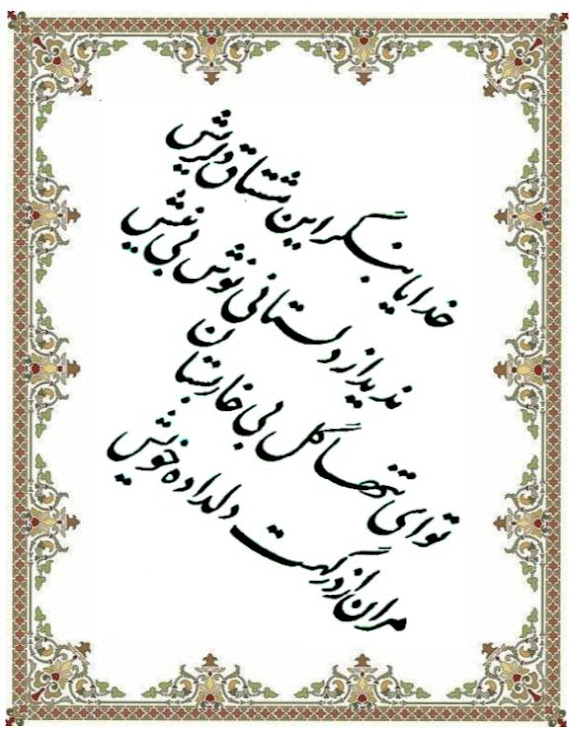 خدایا بنگر این مشتاق دلریش
ندید از دلستانی نوش بی نیش
تو ای تنها گل بی خار بستان
مران از درگهت دلداده خویش